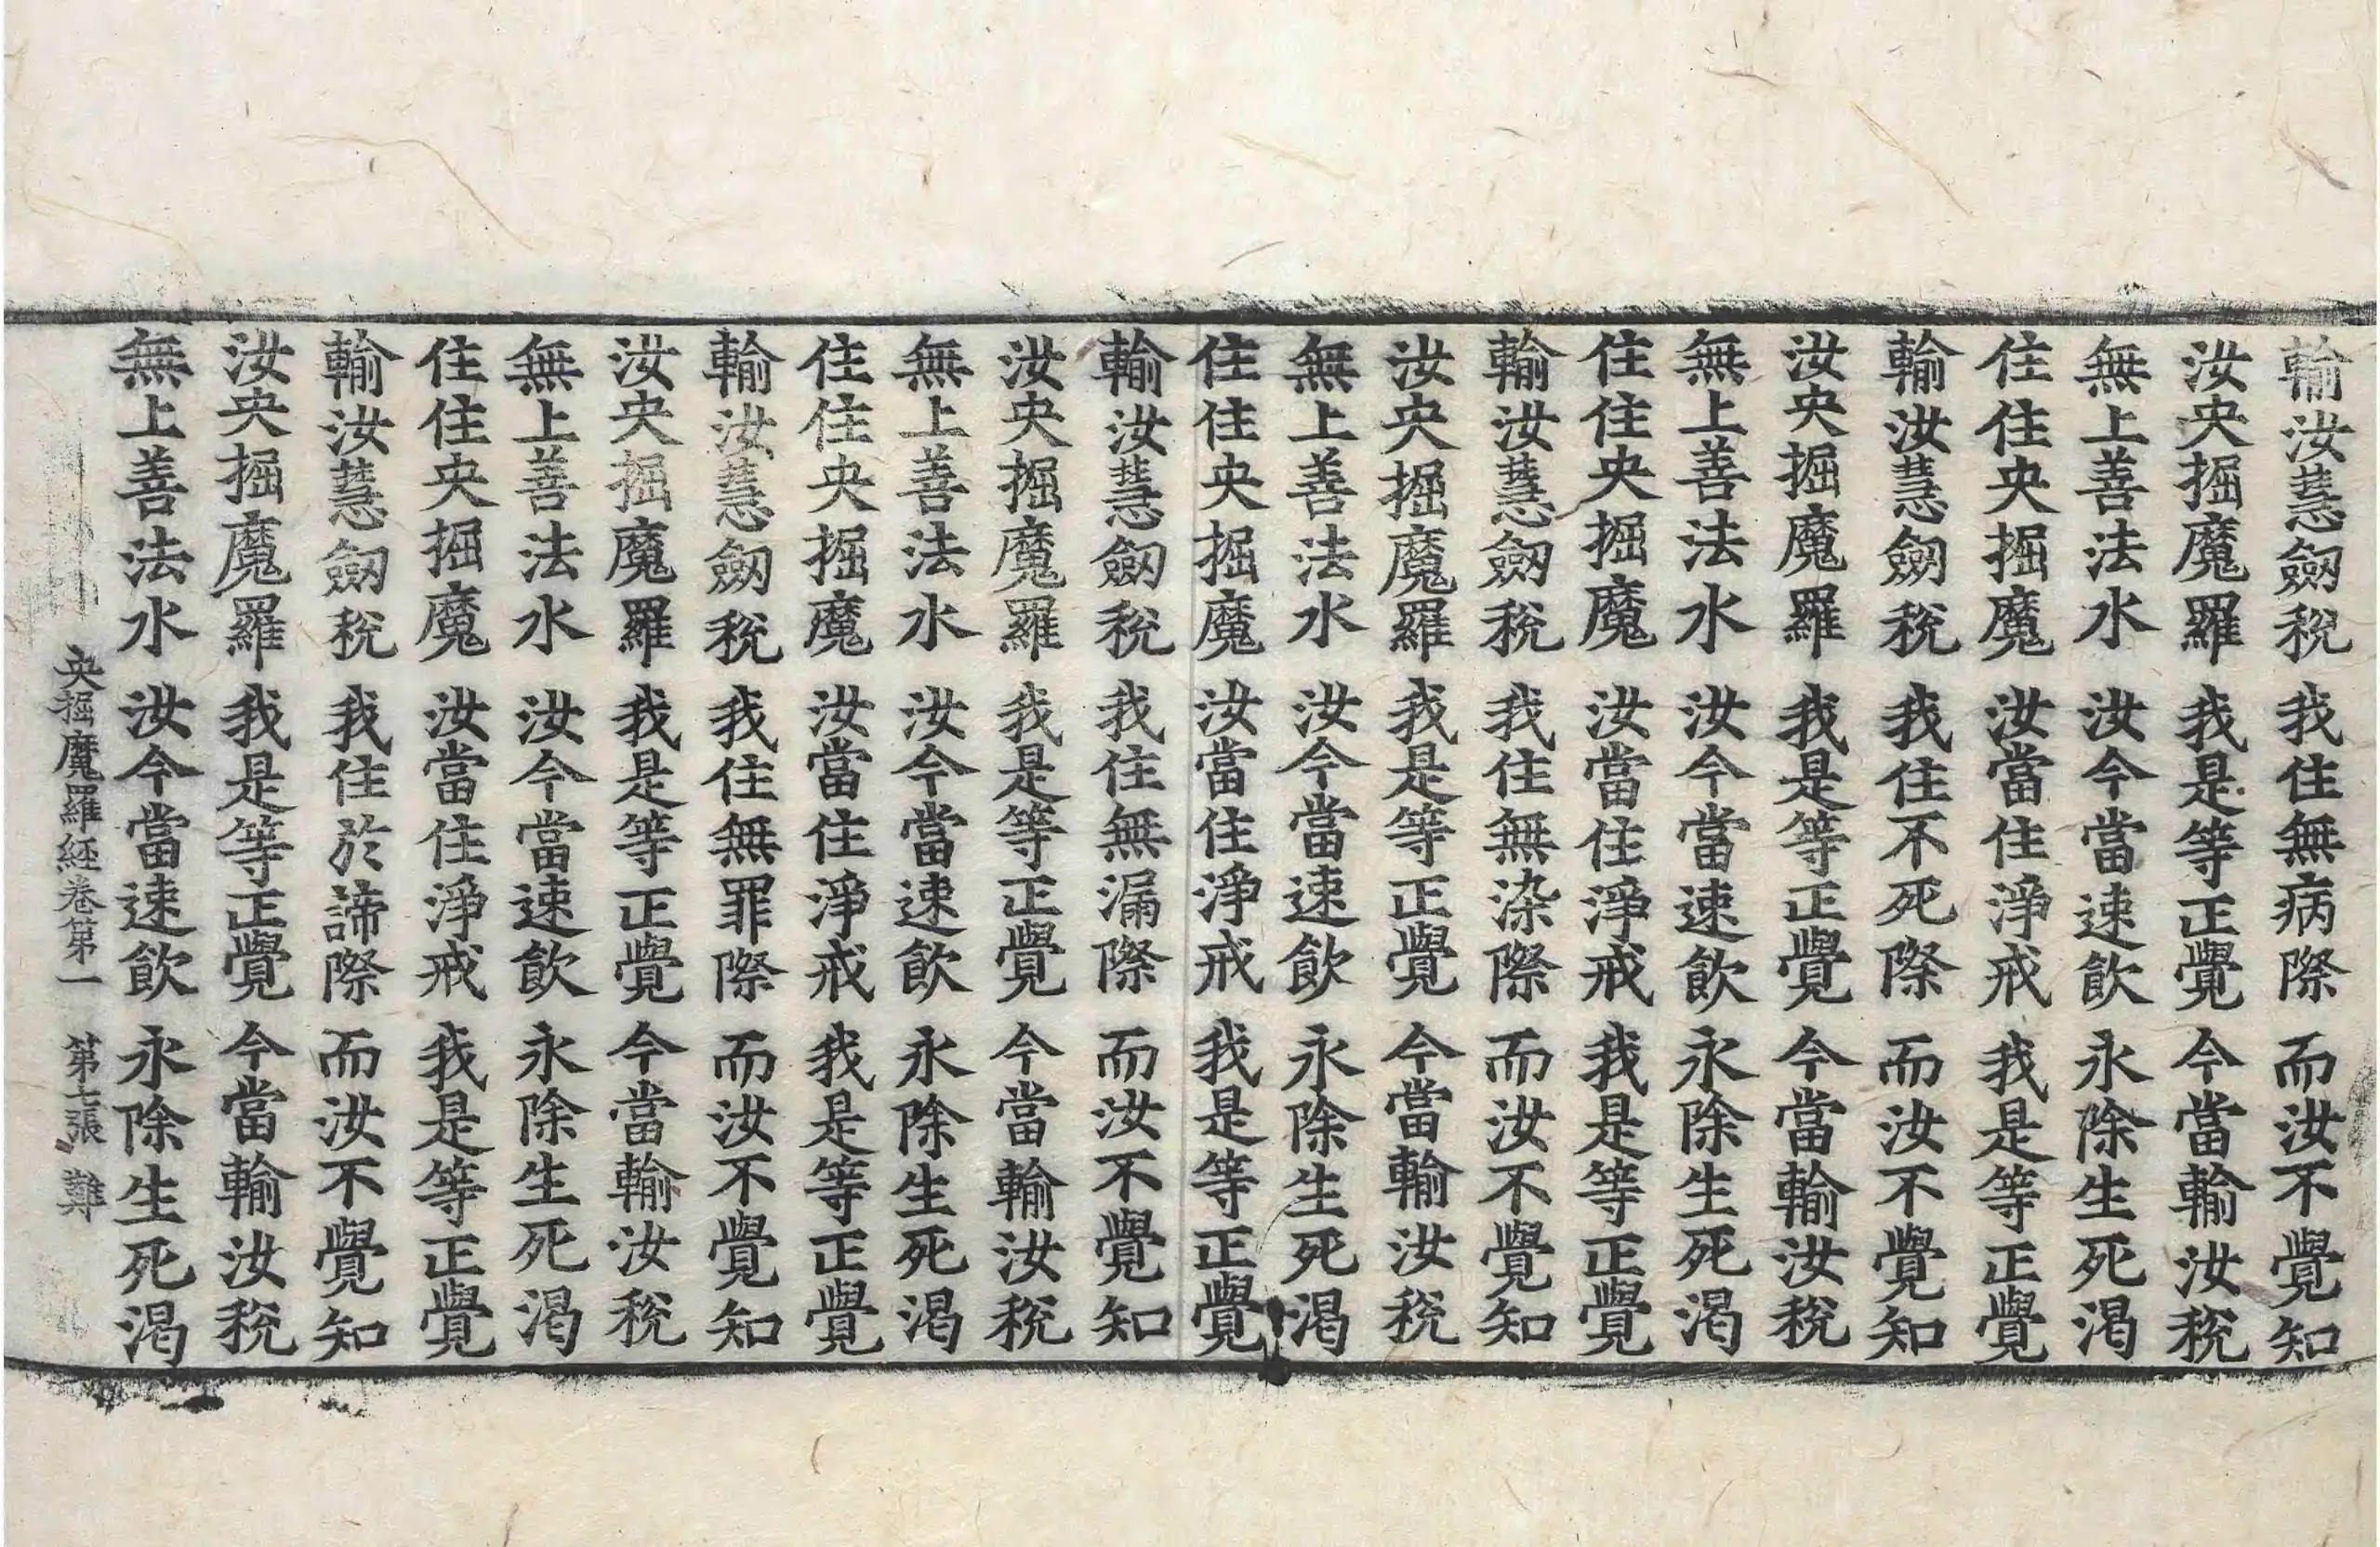 輸汝慧劒稅 我住無病際 而汝不覺知
汝央掘魔羅 我是等正覺 今當輸汝稅
無上善法水 汝今當速飲 永除生死渴
住住央掘魔 汝當住淨戒 我是等正覺
輸汝慧劒稅 我住不死際 而汝不覺知
汝央掘魔羅 我是等正覺 今當輸汝稅
無上善法水 汝今當速飲 永除生死渴
住住央掘魔 汝當住淨戒 我是等正覺
輸汝慧劒稅 我住無染際 而汝不覺知
汝央掘魔羅 我是等正覺 今當輸汝稅
無上善法水 汝今當速飲 永除生死渴
住住央掘魔 汝當住淨戒 我是等正覺
輸汝慧劒稅 我住無漏際 而汝不覺知
汝央掘魔羅 我是等正覺 今當輸汝稅
無上善法水 汝今當速飲 永除生死渴
住住央掘魔 汝當住淨戒 我是等正覺
輸汝慧劒稅 我住無罪際 而汝不覺知
汝央掘魔羅 我是等正覺 今當輸汝稅
無上善法水 汝今當速飲 永除生死渴
住住央掘魔 汝當住淨戒 我是等正覺
輸汝慧劒稅 我住於諦際 而汝不覺知
汝央掘魔羅 我是等正覺 今當輸汝稅
無上善法水 汝今當速飲 永除生死渴
央掘魔羅經卷第一 第七張 難